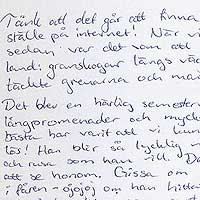 Tänk att det går att finna
ställe på internet! När vi
sedan var det som att
land: granskogar längs väg
täckte grenarna och mar
Det blev en härlig semester
långpromenader och myck
bästa har varit att vi kunn
lös! Han blir så lycklig n
och rusa som han vill. De
att se honom. Gissa om
i fåren - ojojoj om han hitta